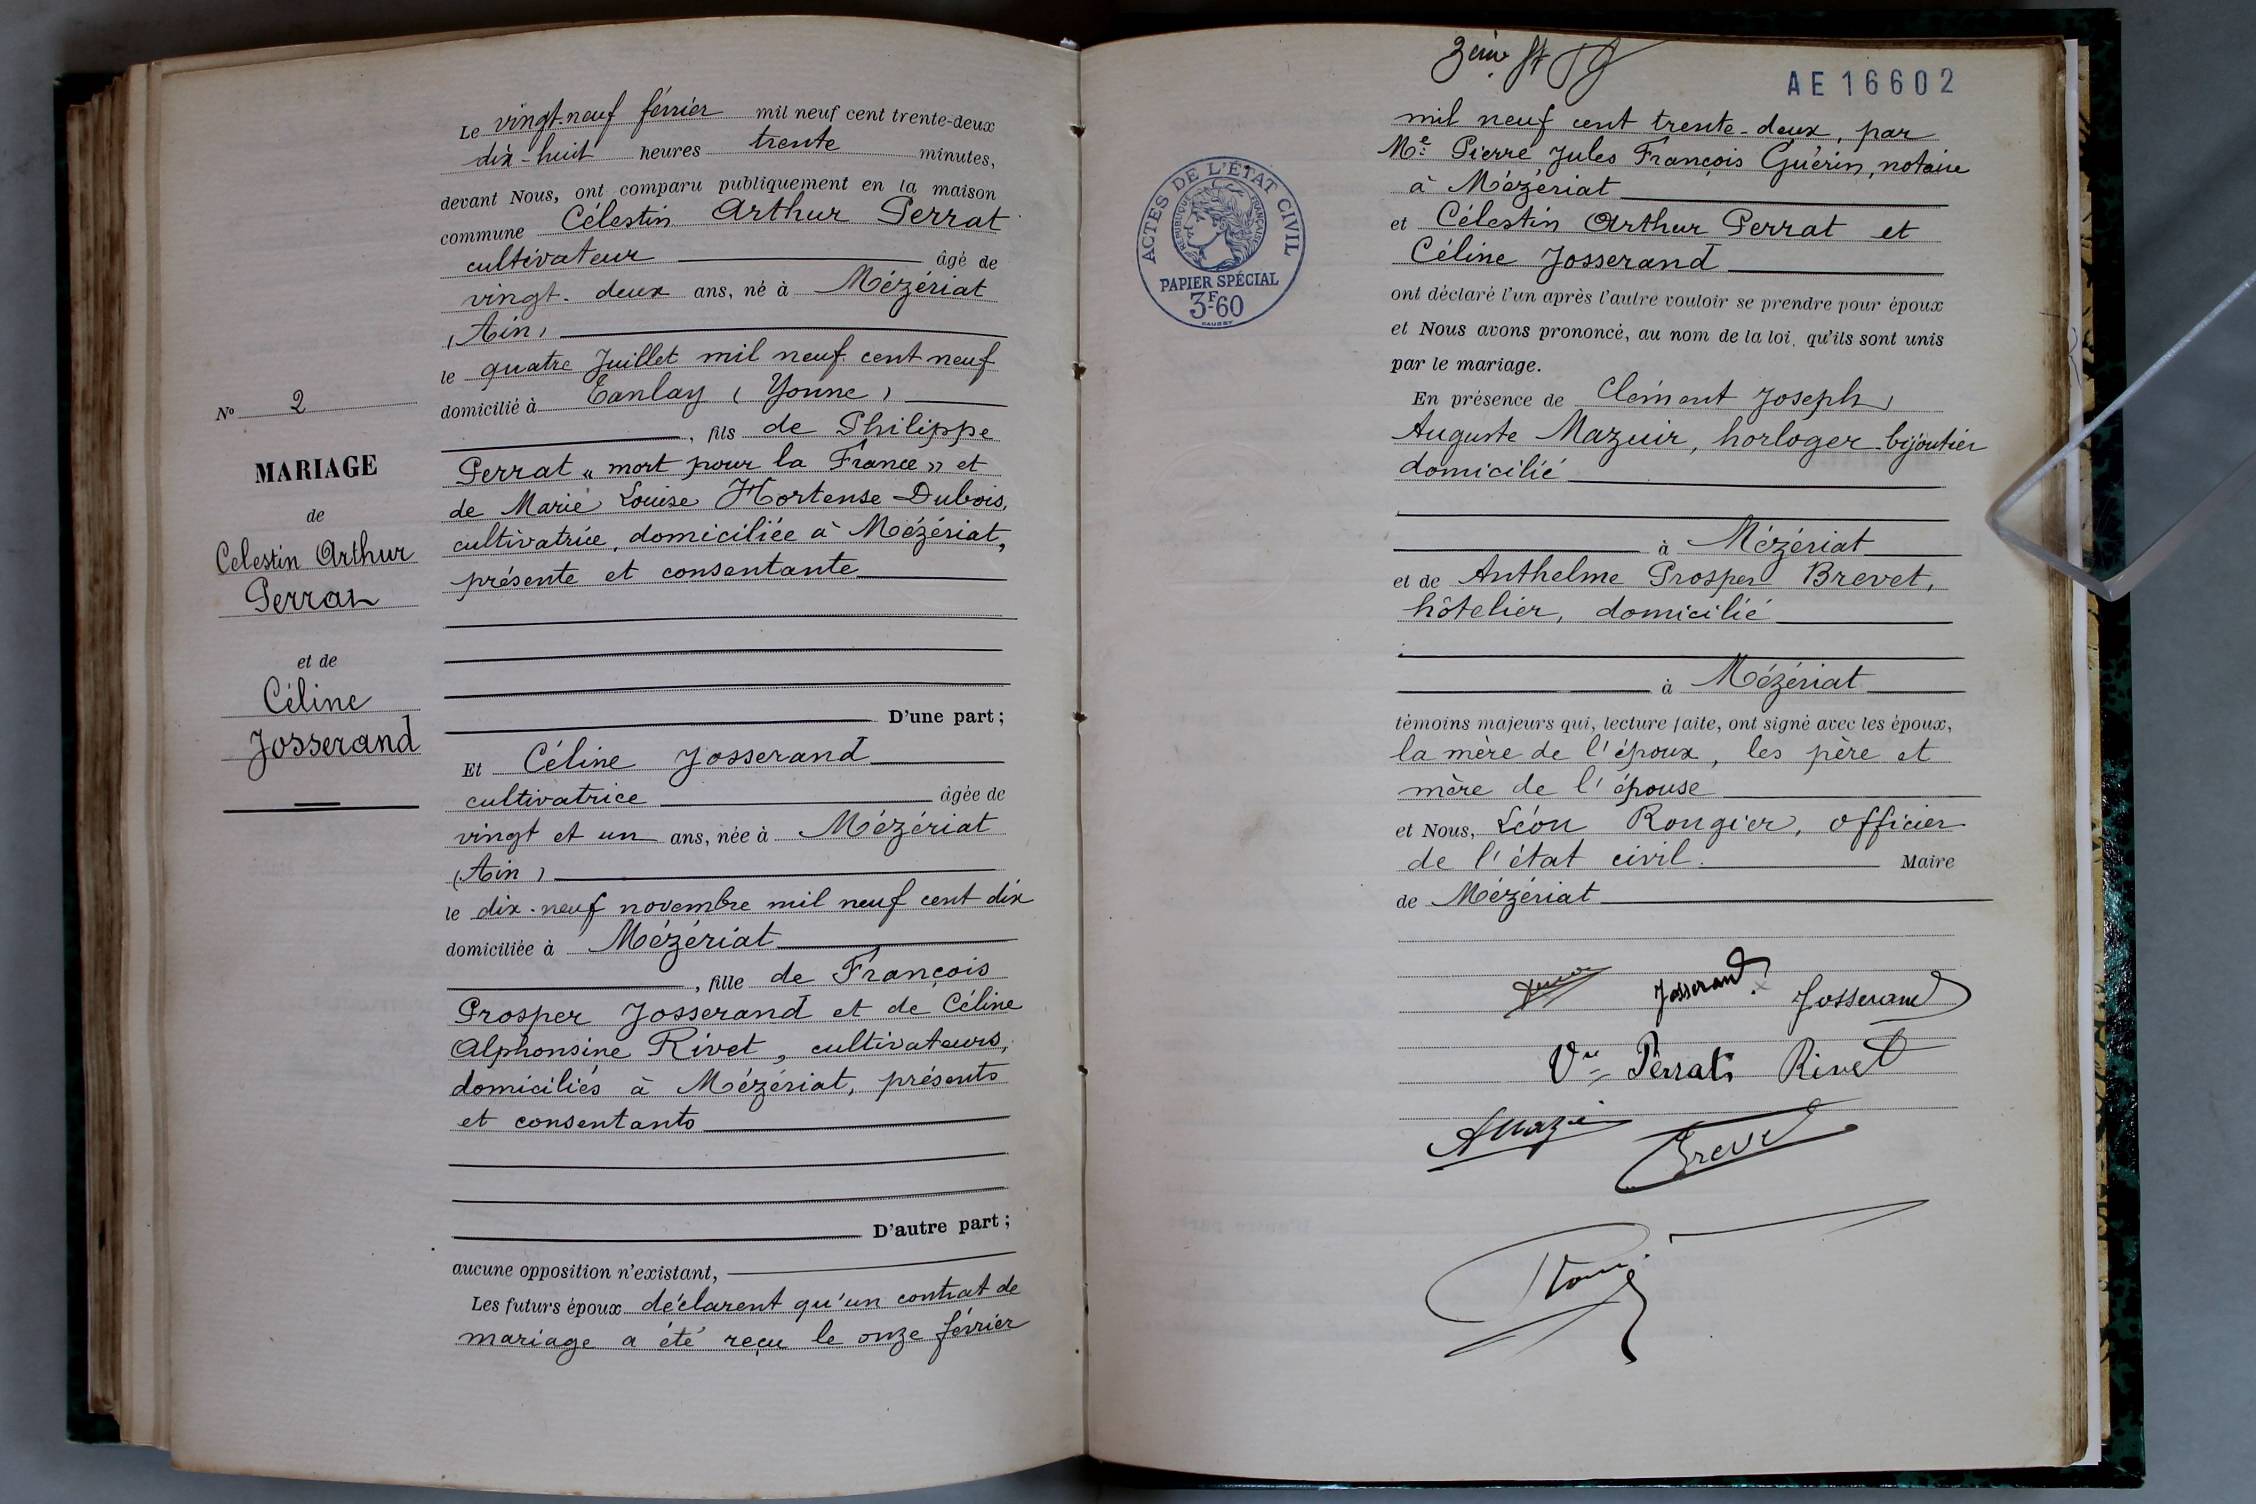 Le vingt-neuf février mil neuf cent trente-deux
dix-huit heures trente minutes,
devant Nous, ont comparu publiquement en la maison
commune Célestin Arthur Perrat
cultivateur âgé de
vingt-deux ans, né à Mézériat
(Ain)
le quatre Juillet mil neuf cent neuf
domicilié à Tanlay (Yonne)
, fils de Philippe
Perrat « mort pour la France » et
de Marie Louise Hortense Dubois,
cultivatrice, domiciliée à Mézériat,
présente et consentante
D'une part;
Et Céline Josserand
cultivatrice âgée de
vingt et un ans, née à Mézériat
(Ain)
le dix-neuf novembre mil neuf cent dix
domiciliée à Mézériat
, fille de François
Prosper Josserand et de Céline
Alphonsine Rivet, cultivateurs,
domiciliés à Mézériat, présents
et consentants
D'autre part;
aucune opposition n'existant,
Les futurs époux déclarent qu'un contrat de
mariage a été reçu le onze février
No 2
MARIAGE
de
Celestin Arthur
Perrat
et de
Céline
Josserand
AE 16602
mil neuf cent trente-deux, par
Me Pierre Jules François Guérin, notaire
à Mézériat
et Célestin Arthur Perrat et
Céline Josserand
ont déclaré l'un après l'autre vouloir se prendre pour époux
et Nous avons prononcé, au nom de la loi, qu'ils sont unis
par le mariage.
En présence de Clément Joseph,
Auguste Mazuir, horloger-bijoutier
domicilié
à Mézériat
et de Anthelme Prosper Brevet,
hôtelier, domicilié
à Mézériat
témoins majeurs qui, lecture faite, ont signé avec les époux,
la mère de l'époux, les père et
mère de l'épouse
et Nous, Léon Rougier, officier
de l'état civil. Maire
de Mézériat
Josserand Josserand
Vve Perrat Rivet
Brevet
ACTES DE L'ÉTAT CIVIL
RÉPUBLIQUE FRANÇAISE
PAPIER SPÉCIAL
3F-60